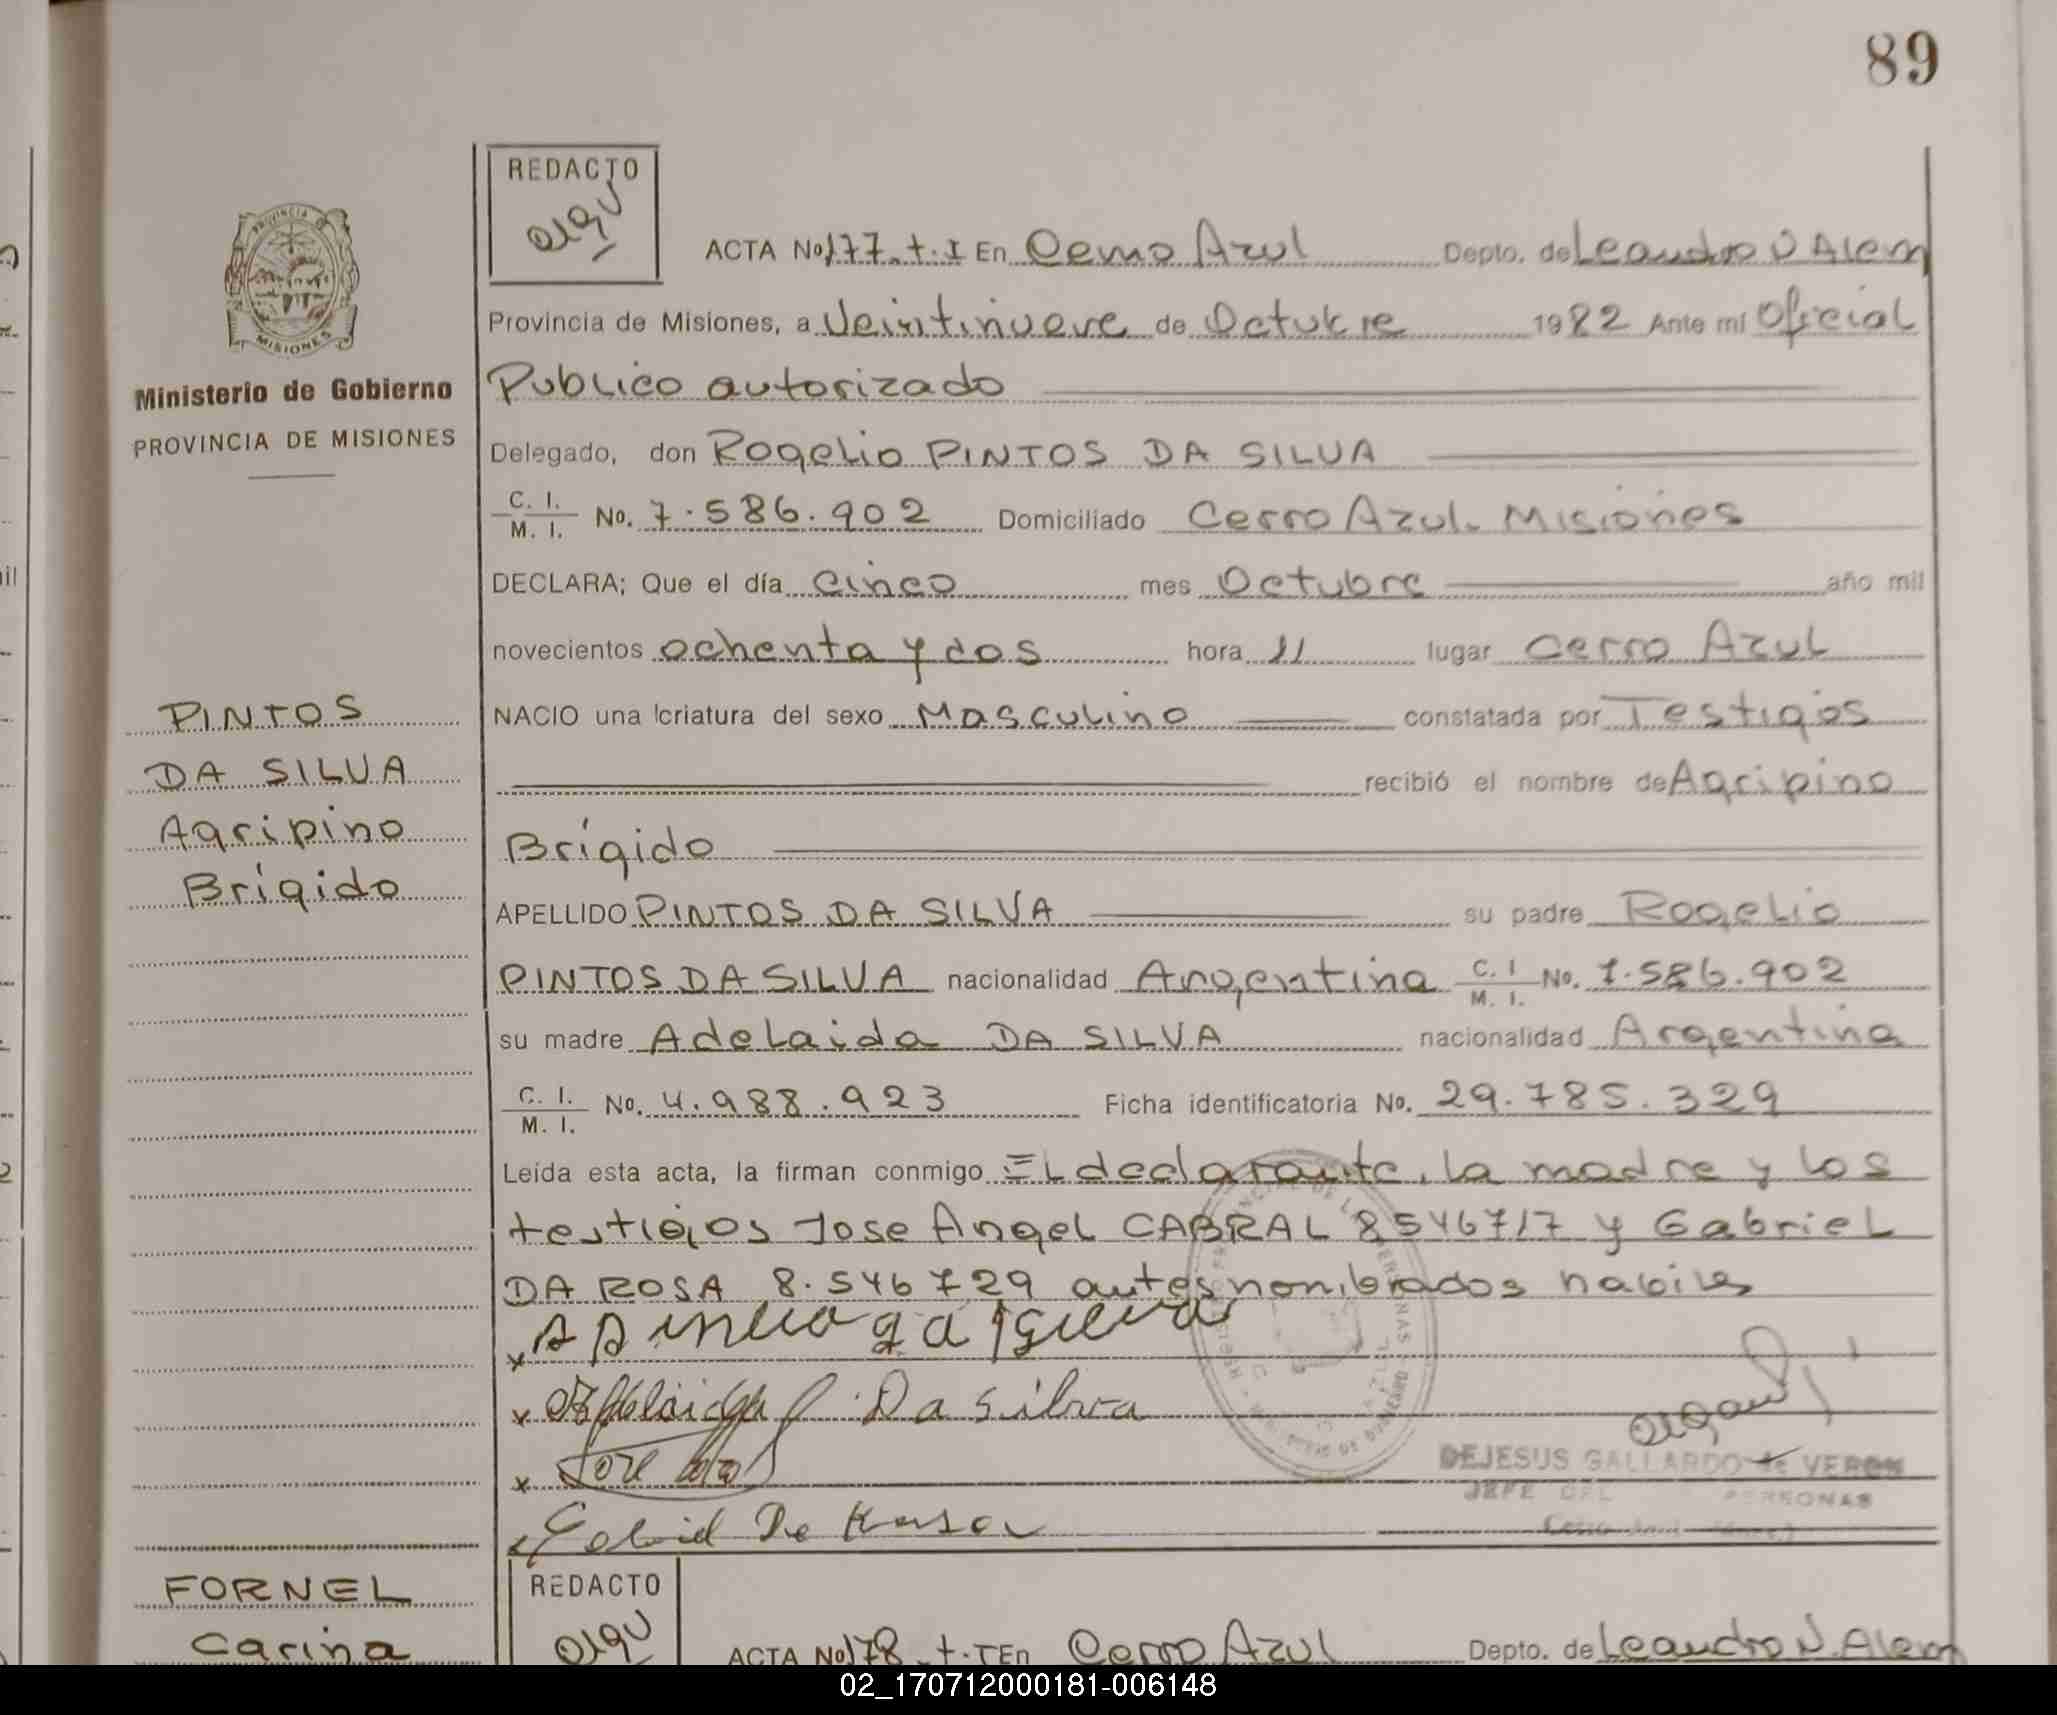 89
REDACTO
PROVINCIA DE
MISIONES
ACTA No 177. t. I En Cerro Azul Depto. de Leandro N Alem
Provincia de Misiones, a Veintinueve de Octubre 1982 Ante mi Oficial
Ministerio de Gobierno
PROVINCIA DE MISIONES
Publico autorizado
Delegado, don Rogelio PINTOS DA SILVA
C. I.
M. I. No. 7.586.902 Domiciliado Cerro Azul. Misiones
DECLARA; Que el día cinco mes Octubre año mil
novecientos ochenta y dos hora 11 lugar Cerro Azul
PINTOS
DA SILVA
Agripino
Brígido
NACIO una criatura del sexo Masculino constatada por Testigos
recibió el nombre de Agripino
Brígido
APELLIDO PINTOS DA SILVA su padre Rogelio
PINTOS DA SILVA nacionalidad Argentina C. I M. I. No. 7.586.902
su madre Adelaida DA SILVA nacionalidad Argentina
C. I.
M. I. No. 4.988.923 Ficha identificatoria No. 29.785.329
Leída esta acta, la firman conmigo El declarante, la madre y los
testigos Jose Angel CABRAL 8546717 y Gabriel
DA ROSA 8.546729 antes nombrados habiles
x
x Adelaida Da Silva
x Jose
DEJESUS GALLARDO de VERON
JEFE DEL PERSONAS
FORNEL
Carina
REDACTO
ACTA No 178. t. I En Cerro Azul Depto. de Leandro N. Alem
02_170712000181-006148